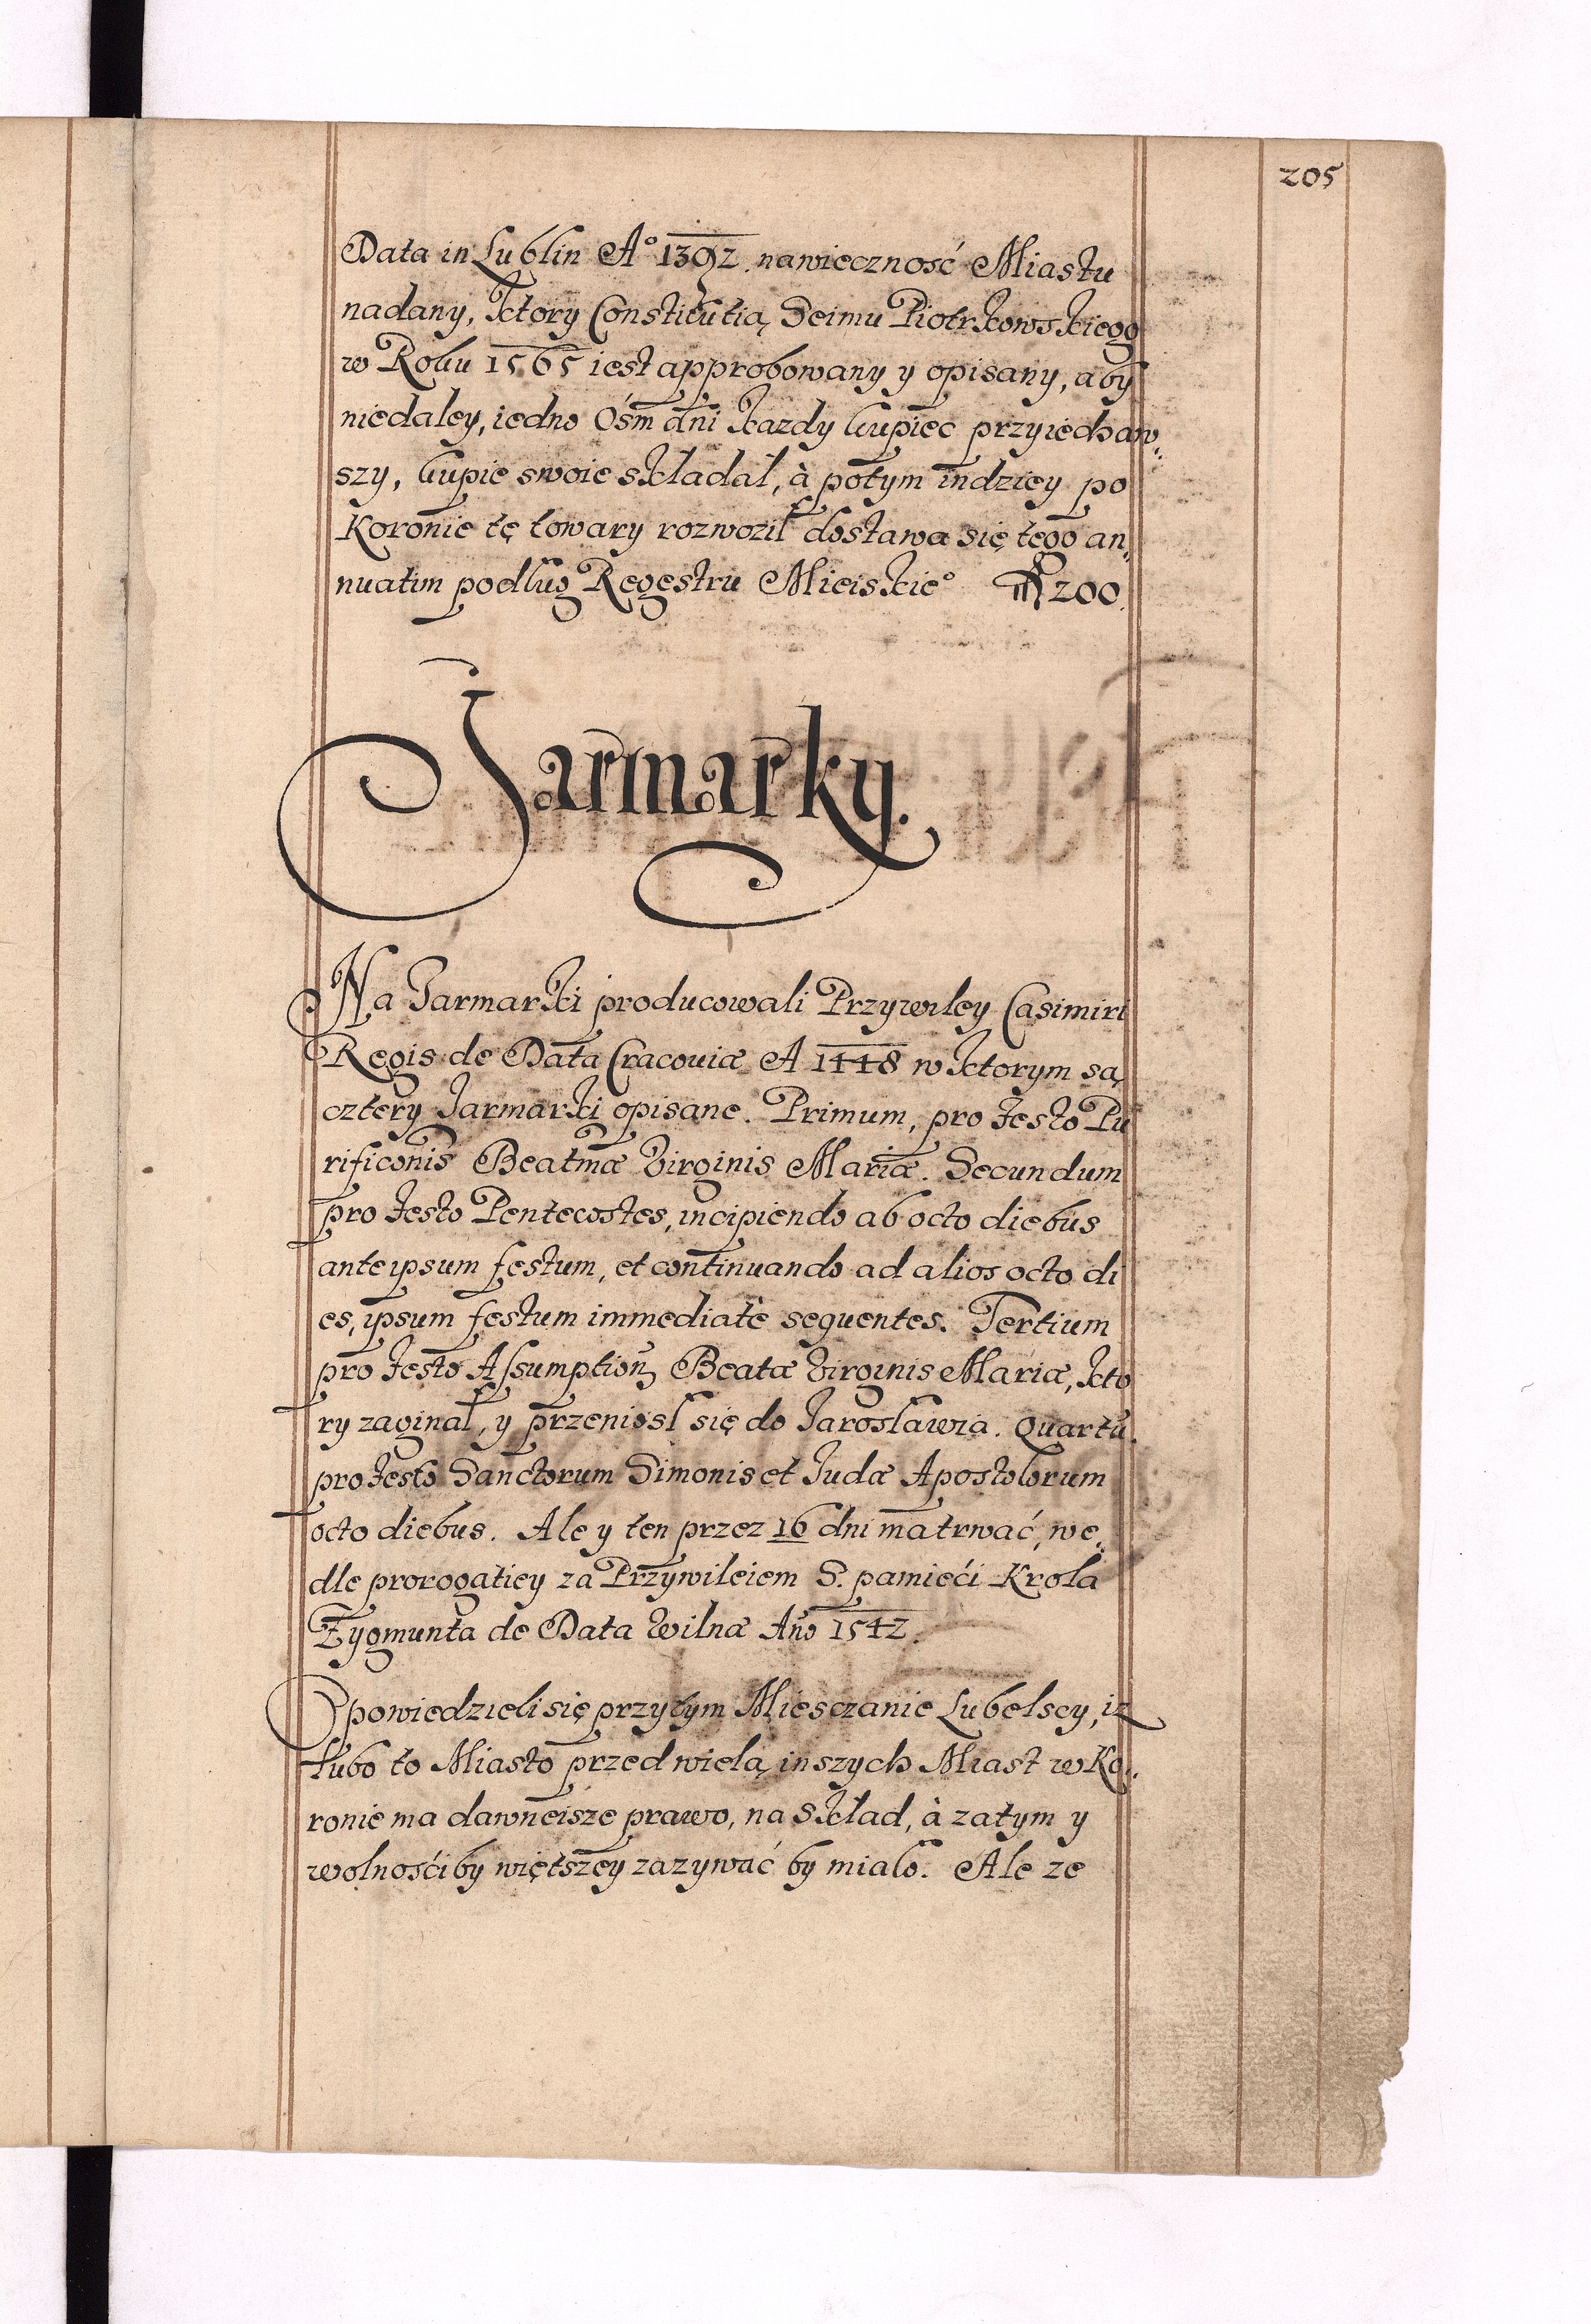 205
Data in Lublin A° 1392. nawieczność Miastu
nadany, ktory Constitutią Seimu Piotrkowskiego
w Roku 1565 iest approbowany y opisany, aby
niedaley, iedno Ośm dni kazdy kupiec przyiechaw:
szy, kupie swoie składał, à potym indziey po
Koronie tę towary rozwoził dostawa się tego an:
nuatim podług Regestru Mieiskie° 200.
Jarmarky.
Na Jarmarki producowali Przywiley Casimiri
Regis de Data Cracouiæ A 1448 w ktorym są
cztery Jarmarki opisane. Primum, pro festo Pu
rificonis Beatmæ Virginis Mariæ. Secundum
pro festo Pentecostes, incipiendo ab octo diebus
ante ipsum festum, et continuando ad alios octo di
es, ipsum festum immediatè sequentes. Tertium
pro festo Assumption Beatæ Virginis Mariæ, kto
ry zaginął, y przeniosł się do Jarosławia. Quartū.
pro festo Sanctorum Simonis et Judæ Apostolorum
octo diebus. Ale y ten przez 16 dni ma trwać, we:
dle prorogatiey za Przywileiem S. pamięći Krola
Zygmunta de Data Wilnæ Año 1542.
Opowiedzieli się przytym Miesczanie Lubelscy, iz
lubo to Miasto przed wielą inszych Miast w Ko:
ronie ma dawneisze prawo, na skład, à zatym y
wolnośći by więtszey zazywać by miało. Ale ze